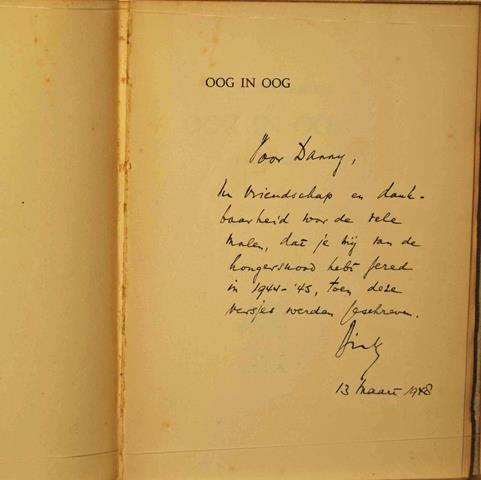 OOG IN OOG
Voor Danny,
In vriendschap en dank-
baarheid voor de vele
malen, dat je mij van de
hongersnood hebt gered
in 1944-'45, toen deze
versjes werden geschreven.
13 maart 1948